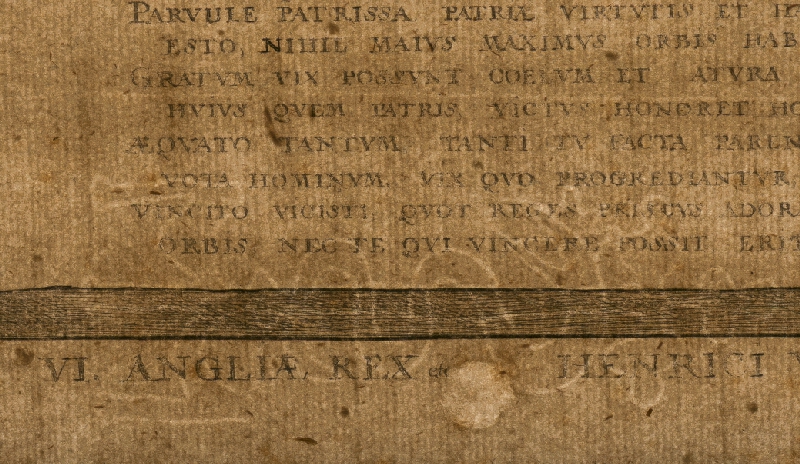 PARVULE PATRISSA PATRIÆ VIRTVTIS ET
ESTO, NIHIL MAIVS MAXIMVS ORBIS HAB
GRATVM VIX POSSVNT COELVM ET ATVRA
HVIVS QVEM PATRIS VICTVS HONORET HO
ÆQVATO TANTVM TANTI TV FACTA PAREN
VOTA HOMINVM, VIX QVO PROGREDIANTVR
VINCITO VICISTI, QVOT REGES PRISCVS ADOR
ORBIS NEC TE QVI VINCERE POSSIT ERIT
VI. ANGLIÆ REX HENRICI V